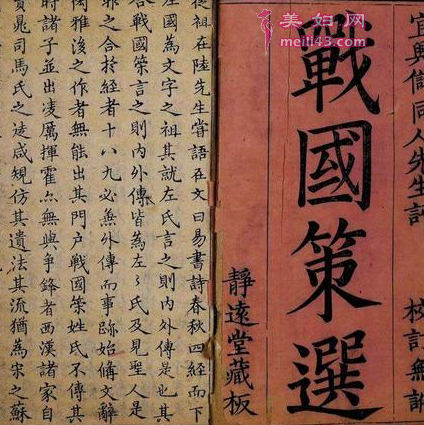 美妇网
meiti43.com
宜興儲同人先生評
戰國策選
校訂無訛
靜遠堂藏板
從祖在陸先生嘗語在文曰易書詩春秋四經而下
左國為文字之祖其就左氏言之則內外傳是也其
合戰國策言之則內外傳皆為左氏左氏及見聖人是
非之合於經者十八九必無外傳而事跡始備文辭
閎雅後之作者無能出其門戶戰國策姓氏不傳其
時諸子並出凌厲揮霍無與爭鋒者西漢諸家自
賈晁司馬氏之徒咸規仿其遺法其流猶為宋之蘇